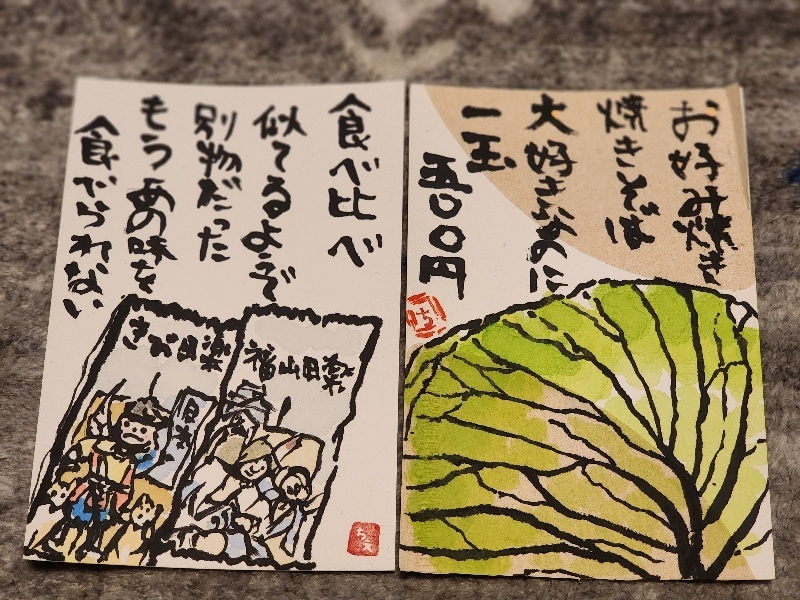 お好み焼き
焼きそば
大好きなのに
一玉
五〇〇円
ち
食べ比べ
似てるようで
別物だった
もうあの味を
食べられない
福山田楽
きび田楽
日本